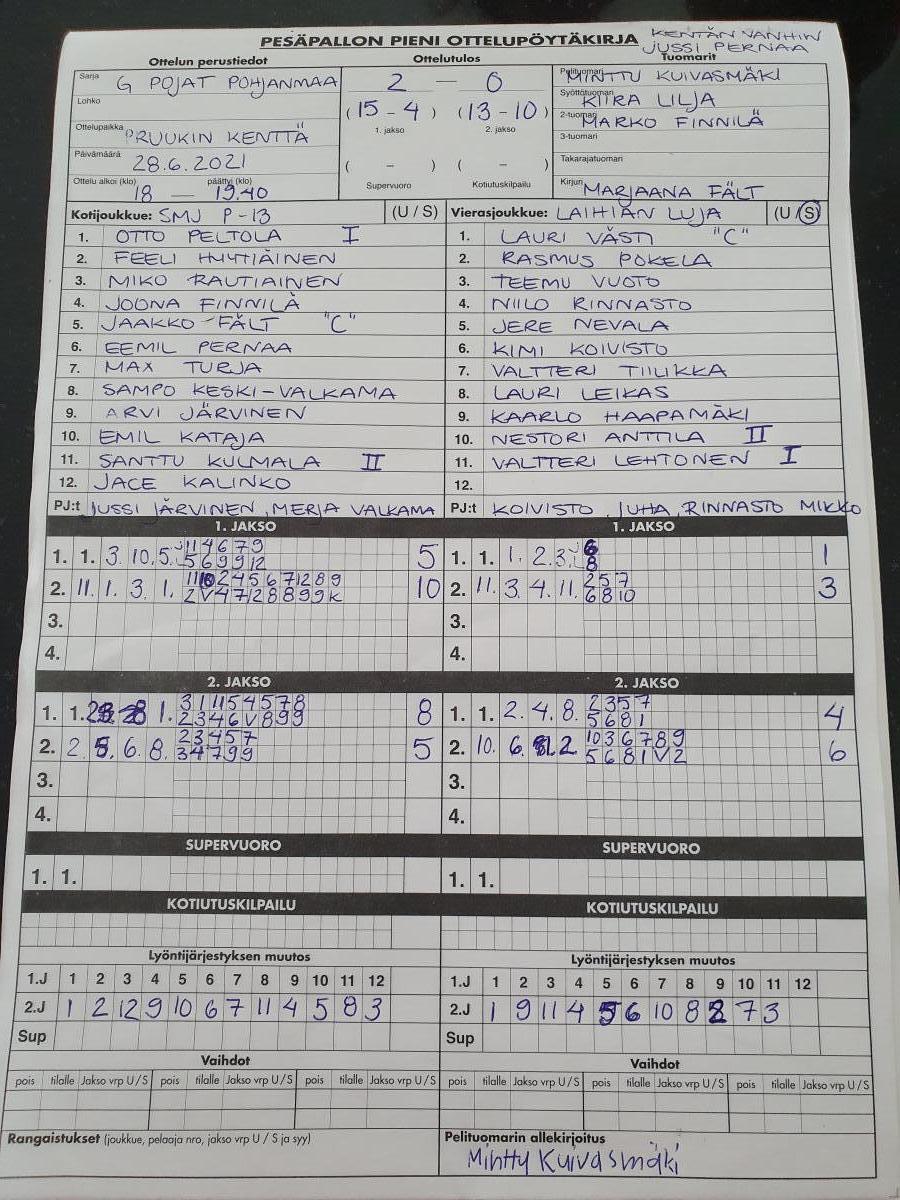 KENTÄN VANHIN
JUSSI PERNAA
PESÄPALLON PIENI OTTELUPÖYTÄKIRJA
Ottelun perustiedot Ottelutulos Tuomarit
Sarja G POJAT POHJANMAA 2 — 0 Pelituomari MINTTU KUIVASMÄKI
Lohko (15 - 4) (13 - 10) Syöttötuomari KIIRA LILJA
1. jakso 2. jakso 2-tuomari MARKO FINNILÄ
Ottelupaikka RUUKIN KENTTÄ 3-tuomari
Päivämäärä 28.6.2021 ( - ) ( - ) Takarajatuomari
Ottelu alkoi (klo) 18 — päättyi (klo) 19.40 Supervuoro Kotiutuskilpailu Kirjuri MARJAANA FÄLT
Kotijoukkue: SMJ P-13 (U / S) Vierasjoukkue: LAIHIAN LUJA (U / S)
1. OTTO PELTOLA I 1. LAURI VÄSTI "C"
2. FEELI HYYTIÄINEN 2. RASMUS POKELA
3. MIKO RAUTIAINEN 3. TEEMU VUOTO
4. JOONA FINNILÄ 4. NIILO RINNASTO
5. JAAKKO FÄLT "C" 5. JERE NEVALA
6. EEMIL PERNAA 6. KIMI KOIVISTO
7. MAX TURJA 7. VALTTERI TIILIKKA
8. SAMPO KESKI-VALKAMA 8. LAURI LEIKAS
9. ARVI JÄRVINEN 9. KAARLO HAAPAMÄKI
10. EMIL KATAJA 10. NESTORI ANTTILA II
11. SANTTU KULMALA II 11. VALTTERI LEHTONEN I
12. JACE KALINKO 12.
PJ:t JUSSI JÄRVINEN, MERJA VALKAMA PJ:t KOIVISTO JUHA, RINNASTO MIKKO
1. JAKSO 1. JAKSO
1. 1. 3. 10. 5. 5 1. 1. 1. 2. 3. 1
2. 11. 1. 3. 1. 10 2. 11. 3. 4. 11. 2 5 7 6 8 10 3
3. 3.
4. 4.
2. JAKSO 2. JAKSO
1. 1. 1. 8 1. 1. 2. 4. 8. 2 3 5 7 5 6 8 1 4
2. 2 5. 6. 8. 2 3 4 5 7 3 4 7 9 9 5 2. 10. 6. 10 3 6 7 8 9 5 6 8 1 V 2 6
3. 3.
4. 4.
SUPERVUORO SUPERVUORO
1. 1. 1. 1.
KOTIUTUSKILPAILU KOTIUTUSKILPAILU
Lyöntijärjestyksen muutos Lyöntijärjestyksen muutos
1.J 1 2 3 4 5 6 7 8 9 10 11 12 1.J 1 2 3 4 5 6 7 8 9 10 11 12
2.J 1 2 12 9 10 6 7 11 4 5 8 3 2.J 1 9 11 4 5 6 10 8 2 7 3
Sup Sup
Vaihdot Vaihdot
pois tilalle Jakso vrp U / S pois tilalle Jakso vrp U / S pois tilalle Jakso vrp U / S pois tilalle Jakso vrp U / S pois tilalle Jakso vrp U / S pois tilalle Jakso vrp U / S
Rangaistukset (joukkue, pelaaja nro, jakso vrp U / S ja syy) Pelituomarin allekirjoitus
Minttu Kuivasmäki